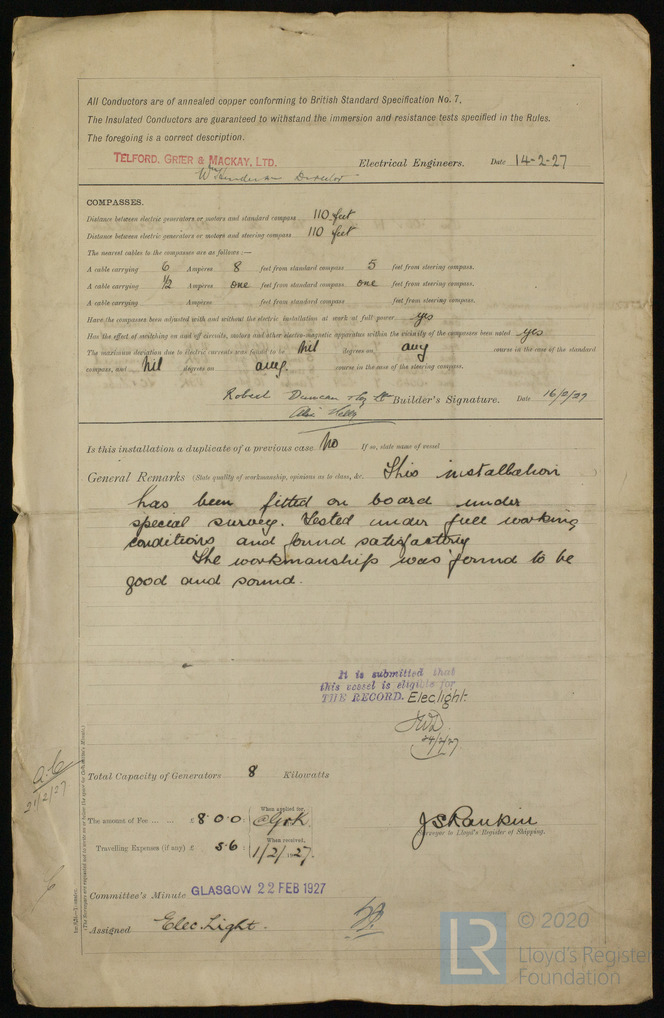 All Conductors are of annealed copper conforming to British Standard Specification No. 7.
The Insulated Conductors are guaranteed to withstand the immersion and resistance tests specified in the Rules.
The foregoing is a correct description.
TELFORD, GRIER & MACKAY, LTD. Electrical Engineers. Date 14-2-27
Director
COMPASSES.
Distance between electric generators or motors and standard compass 110 feet
Distance between electric generators or motors and steering compass 110 feet
The nearest cables to the compasses are as follows:—
A cable carrying 6 Ampères 8 feet from standard compass 5 feet from steering compass.
A cable carrying ½ Ampères one feet from standard compass one feet from steering compass.
A cable carrying Ampères feet from standard compass feet from steering compass.
Have the compasses been adjusted with and without the electric installation at work at full power yes
Has the effect of switching on and off circuits, motors and other electro-magnetic apparatus within the vicinity of the compasses been noted yes
The maximum deviation due to electric currents was found to be Nil degrees on any course in the case of the standard
compass, and Nil degrees on any. course in the case of the steering compass.
Robert Duncan & Co Ltd Builder's Signature. Date 16/2/27
Is this installation a duplicate of a previous case No If so, state name of vessel
General Remarks (State quality of workmanship, opinions as to class, &c. This installation
has been fitted on board under
special survey. Tested under full working
conditions and found satisfactory
The workmanship was found to be
good and sound.
It is submitted that
this vessel is eligible for
THE RECORD. Elec. light.
24/2/27
21/2/27
Total Capacity of Generators 8 Kilowatts
The amount of Fee ... ... £ 8.0.0 When applied for,
Travelling Expenses (if any) £ 5.6 When received,
1/2/1927.
J S Rankin
Surveyor to Lloyd's Register of Shipping.
Committee's Minute GLASGOW 22 FEB 1927
Assigned Elec. Light.
LR © 2020
Lloyd's Register
Foundation